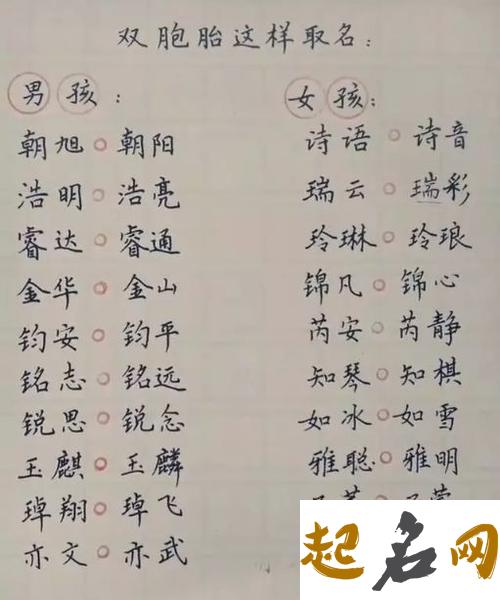 双胞胎这样取名:
男孩:
朝旭○朝阳
浩明○浩亮
睿达○睿通
金华○金山
钧安○钧平
铭志○铭远
锐思○锐念
玉麒○玉麟
琸翔○琸飞
亦文○亦武
女孩:
诗语○诗音
瑞云○瑞彩
玲琳○玲琅
锦凡○锦心
芮安○芮静
知琴○知棋
如冰○如雪
雅聪○雅明
起名网